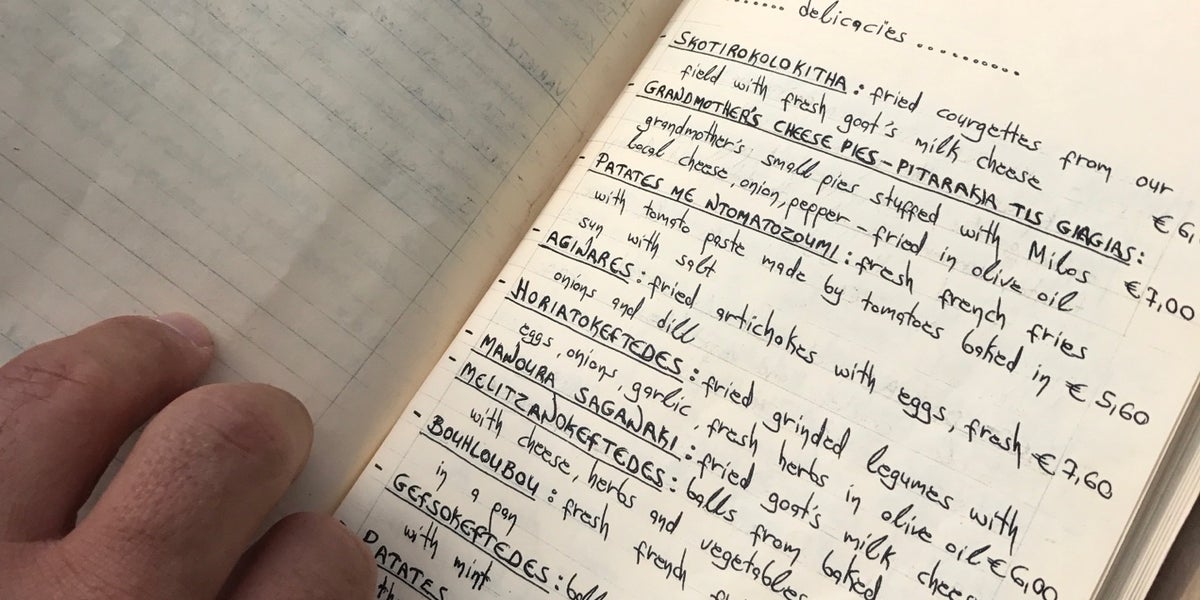 ....... delicacies ..........
- SKOTIROKOLOKITHA: fried courgettes from our
field with fresh goat's milk cheese € 6,
- GRANDMOTHER'S CHEESE PIES - PITARAKIA TIS GIAGIAS:
grandmother's small pies stuffed with Milos
local cheese, onion, pepper - fried in olive oil €7,00
- PATATES ME NTOMATOZOUMI: fresh french fries
with tomato paste made by tomatoes baked in € 5,60
sun with salt
- AGINARES: fried artichokes with eggs, fresh €7,60
onions and dill
- HORIATOKEFTEDES: fried grinded legumes with
eggs, onions, garlic, fresh herbs in olive oil €6,00
- MANOURA SAGANAKI: fried goat's milk chees
- MELITZANOKEFTEDES: balls from baked
with cheese, herbs and vegetables
in a pan
- BOUHLOUBOU: fresh french
- GEFSOKEFTEDES: ball
with mint
PATATES